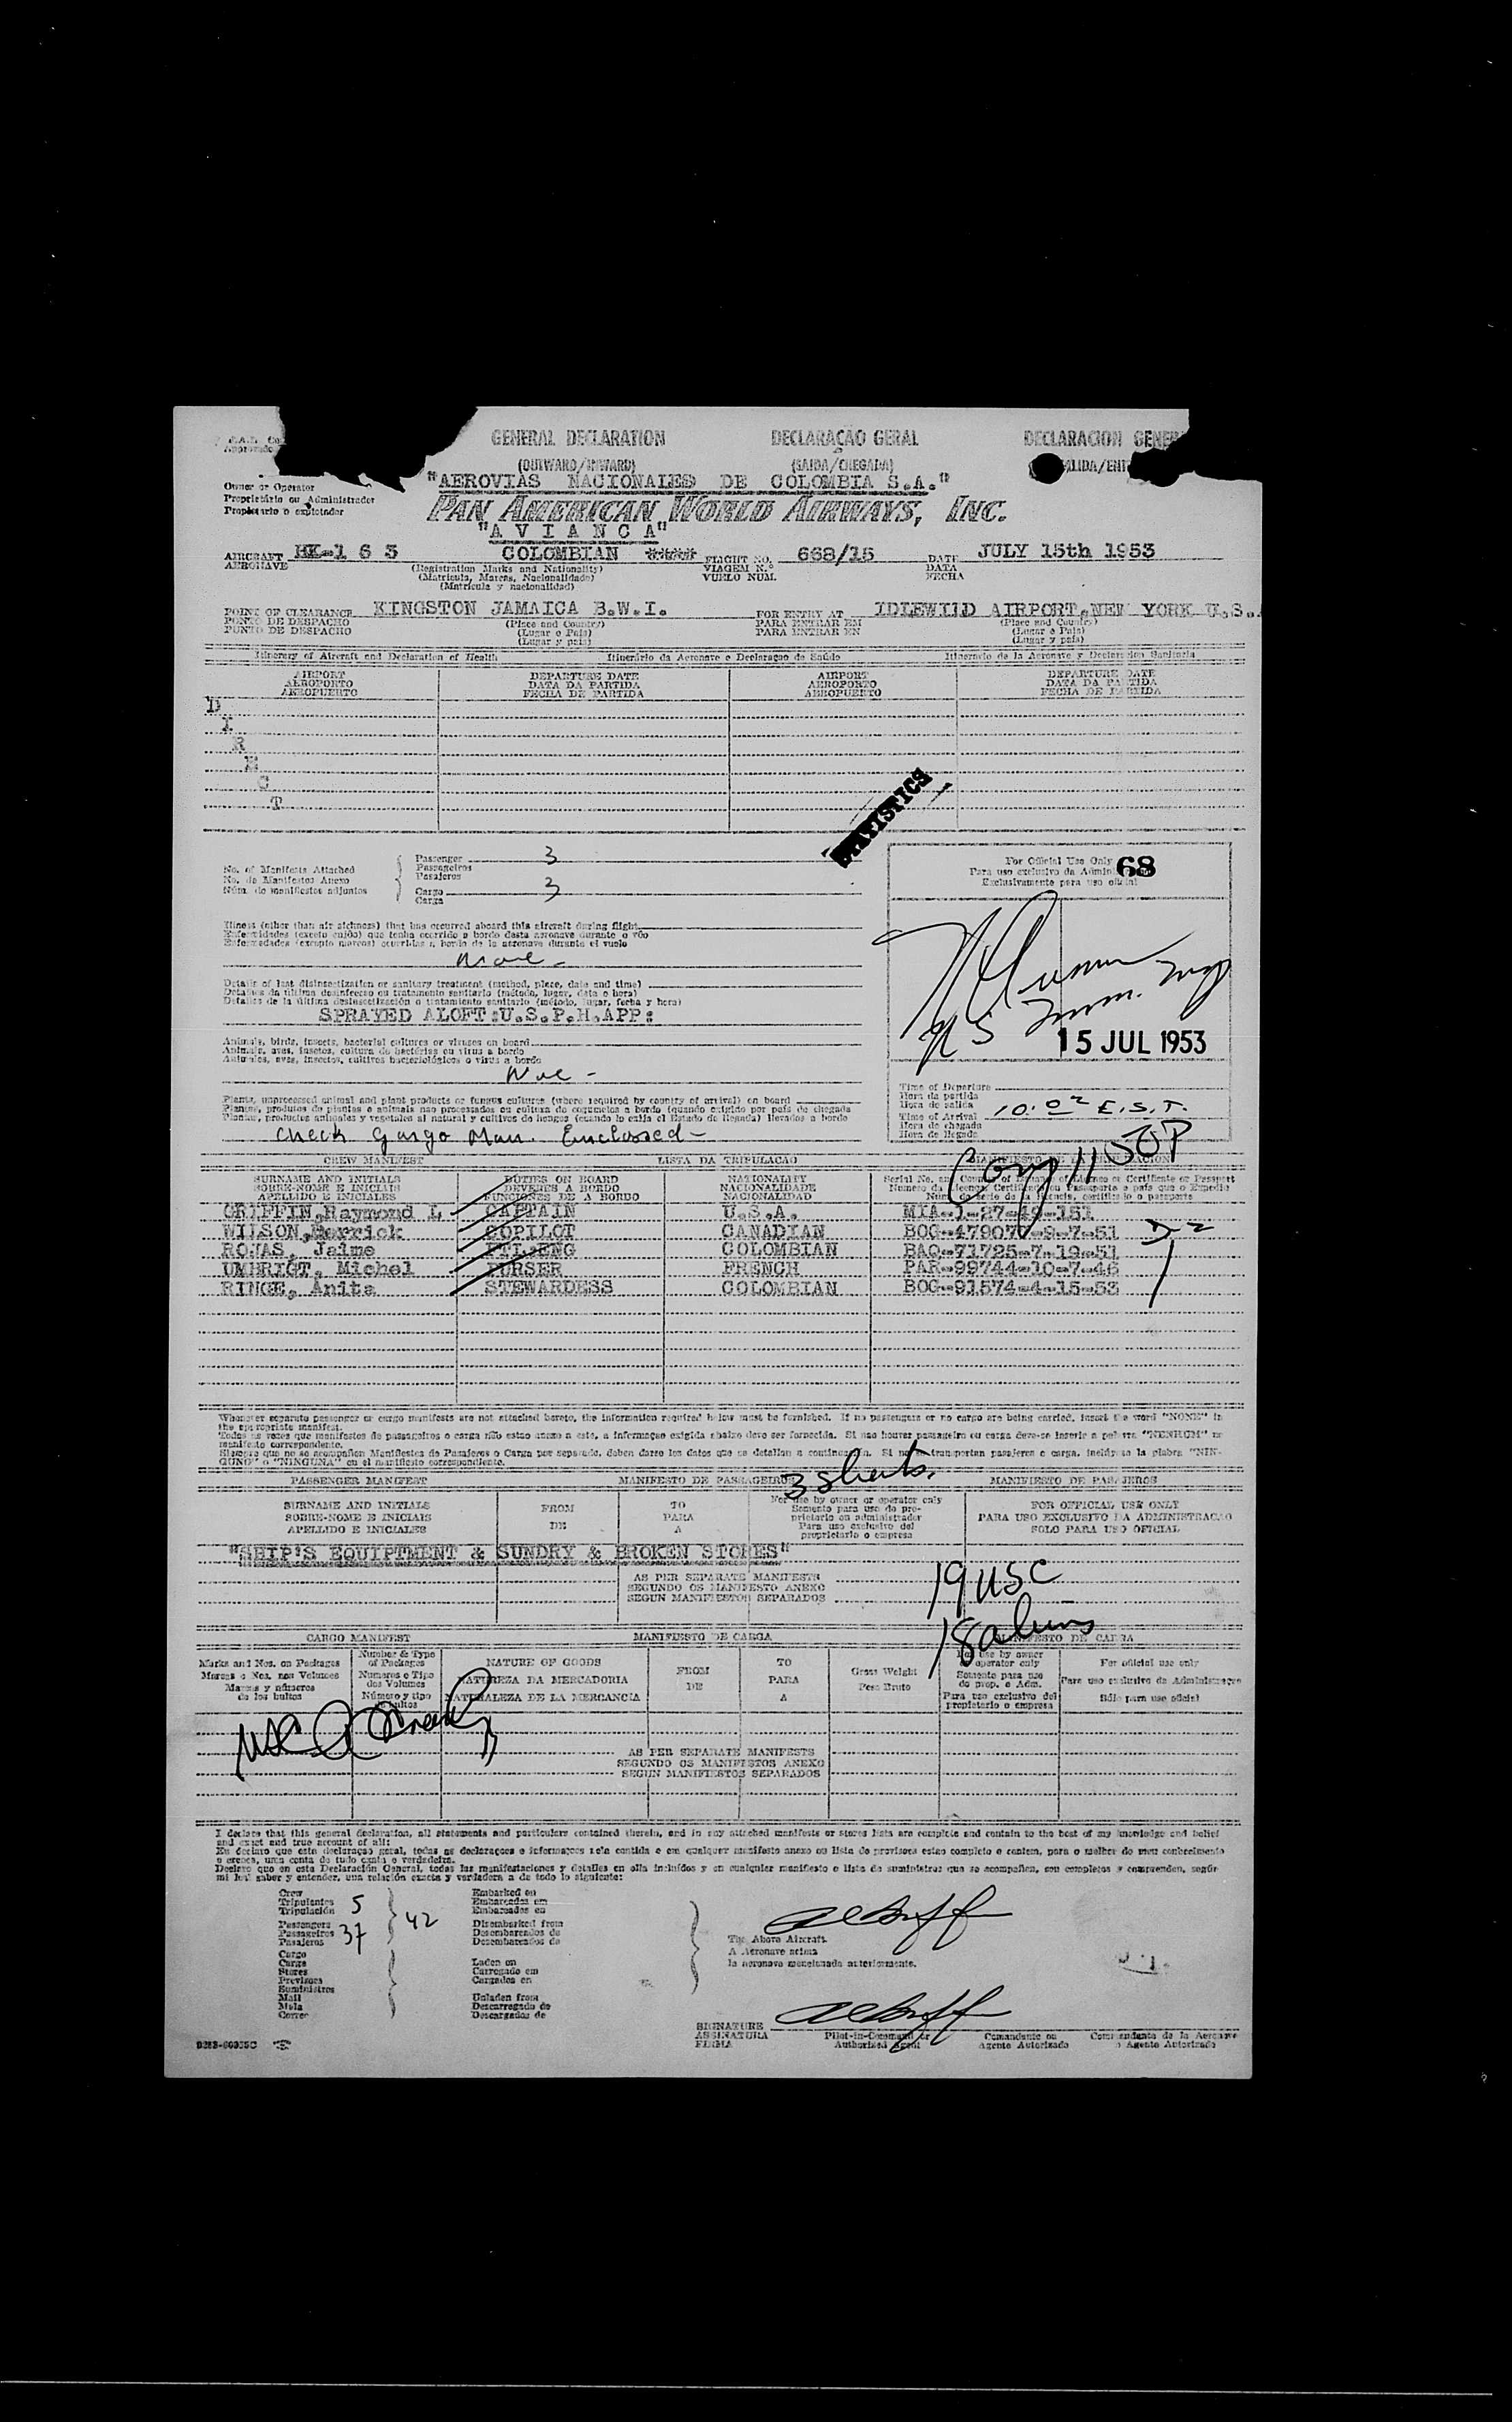 GENERAL DECLARATION DECLARAÇÃO GERAL DECLARACION
(OUTWARD/INWARD) (SAIDA/CHEGADA)
Owner or Operator
Proprietário ou Administrador
Propietario o explotador
"AEROVIAS NACIONALES DE COLOMBIA S.A."
PAN AMERICAN WORLD AIRWAYS, INC.
"A V I A N C A"
AIRCRAFT HK-1 6 3 COLOMBIAN FLIGHT NO. 668/15 DATE JULY 15th 1953
AERONAVE (Registration Marks and Nationality) VIAGEM N.º DATA
(Matricula, Marcas, Nacionalidade) VUELO NUM. FECHA
(Matricula y nacionalidad)
POINT OF CLEARANCE KINGSTON JAMAICA B.W.I. FOR ENTRY AT IDLEWILD AIRPORT, NEW YORK U.S.
PONTO DE DESPACHO (Place and Country) PARA ENTRAR EM (Place and Country)
PUNTO DE DESPACHO (Lugar e País) PARA ENTRAR EN (Lugar e País)
(Lugar y país) (Lugar y país)
Itinerary of Aircraft and Declaration of Health Itinerário da Aeronave e Declaraçao de Saúde Itinerario de la Aeronave y Declaracion Sanitaria
AIRPORT DEPARTURE DATE AIRPORT DEPARTURE DATE
AEROPORTO DATA DA PARTIDA AEROPORTO DATA DA PARTIDA
AEROPUERTO FECHA DE PARTIDA AEROPUERTO FECHA DE PARTIDA
D
I
R
E
C
T
STATISTICS
No. of Manifests Attached
No. de Manifestos Anexo
Núm. de manifiestos adjuntos
Passenger 3
Passageiros
Pasajeros
Cargo 3
Carga
For Official Use Only 68
Para uso exclusivo da
Exclusivamente para uso oficial
Illness (other than air sickness) that has occurred aboard this aircraft during flight
Enfermidades (exceto enjôo) que tenha ocorrido a bordo desta aeronave durante o vôo
Enfermedades (excepto mareos) ocurridas a bordo de la aeronave durante el vuelo
None -
Details of last disinsectization or sanitary treatment (method, place, date and time)
Detalhes da última desinfecsao ou tratamento sanitário (método, lugar, data e hora)
Detalles de la última desinsectización o tratamiento sanitario (método, lugar, fecha y hora)
SPRAYED ALOFT:U.S.P.H.APP:
U S Imm. Insp
15 JUL 1953
Animals, birds, insects, bacterial cultures or viruses on board
Animais, aves, insetos, cultura de bactérias ou virus a bordo
Animales, aves, insectos, cultivos bacteriológicos o virus a bordo
None -
Plants, unprocessed animal and plant products or fungus cultures (where required by country of arrival) on board
Plantas, produtos de plantas e animais nao processados ou cultura de cogumelos a bordo (quando exigido por país de chegada
Plantas, productos animales y vegetales al natural y cultivos de hongos (cuando lo exija el Estado de llegada) llevados a bordo
Check Gargo Man. Enclosed -
Time of Departure
Hora da partida
Hora de salida
Time of Arrival 10:02 E.S.T.
Hora de chegada
Hora de llegada
CREW MANIFEST LISTA DA TRIPULACAO
SURNAME AND INITIALS DUTIES ON BOARD NATIONALITY
SOBRE-NOME E INICIAIS DEVERES A BORDO NACIONALIDADE
APELLIDO E INICIALES FUNCIONES DE A BORDO NACIONALIDAD
GRIFFIN, Raymond L CAPTAIN U.S.A. MIA-1-27-49-151
WILSON, Derrick COPILOT CANADIAN BOG-479070-9-7-51
ROJAS, Jaime FTL-ENG COLOMBIAN BAQ-71725-7-19-51
UMBRIGT, Michel PURSER FRENCH PAR-99744-10-7-46
RINGE, Anita STEWARDESS COLOMBIAN BOG-91574-4-15-53
Whenever separate passenger or cargo manifests are not attached hereto, the information required below must be furnished. If no passengers or no cargo are being carried, insert the word "NONE" in
the appropriate manifest.
Todas as vezes que manifestos de passageiros e carga não estao anexo a este, a informaçao exigida abaixo deve ser fornecida. Si nao houver passageiro ou carga deve-se inserir a palavra "NENHUM" no
manifesto correspondente.
Siempre que no se acompañen Manifiestos de Pasajeros o Carga por separado, deben darse los datos que se detallan a continuación. Si no se transportan pasajeros o carga, inclúyase la plabra "NIN-
GUNO" o "NINGUNA" en el manifiesto correspondiente.
3 sheets.
PASSENGER MANIFEST MANIFESTO DE PASSAGEIROS MANIFIESTO DE PASAJEROS
SURNAME AND INITIALS FROM TO For use by owner or operator only FOR OFFICIAL USE ONLY
SOBRE-NOME E INICIAIS DE PARA Somento para uso do pro- PARA USO EXCLUSIVO DA ADMINISTRACAO
APELLIDO E INICIALES A prietario ou administrador SOLO PARA USO OFICIAL
Para uso exclusivo del
propietario o empresa
"SHIP'S EQUIPTMENT & SUNDRY & BROKEN STORES"
AS PER SEPARATE MANIFESTS
SEGUNDO OS MANIFESTO ANEXO
SEGUN MANIFIESTOS SEPARADOS
19 USC
18 aliens
CARGO MANIFEST MANIFIESTO DE CARGA MANIFESTO DE CARGA
Marks and Nos. on Packages Number & Type of Packages NATURE OF GOODS FROM TO Gross Weight For use by owner or operator only For official use only
Marcas e Nos. nos Volumes Numeros e Tipo dos Volumes NATUREZA DA MERCADORIA DE PARA Peso Bruto Somente para uso do prop. e Adm. Para uso exclusivo da Administraçao
Marcas y números de los bultos Número y tipo de bultos NATURALEZA DE LA MERCANCIA A Para uso exclusivo del propietario o empresa Sólo para uso oficial
AS PER SEPARATE MANIFESTS
SEGUNDO OS MANIFESTOS ANEXO
SEGUN MANIFIESTOS SEPARADOS
I declare that this general declaration, all statements and particulars contained therein, and in any attached manifests or stores lists are complete and contain to the best of my knowledge and belief
and exact and true account of all:
Eu declaro que esta declaraçao geral, todas as declaraçoes e informaçoes nela contida e em qualquer manifesto anexo ou lista de provisoes estao completo e contem, para o melhor de meu conhecimento
e crença, uma conta de tudo exata e verdadeira.
Declaro que en esta Declaración General, todas las manifestaciones y detalles en ella incluídos y en cualquier manifiesto o lista de suministros que se acompañen, son completos y comprenden, según
mi leal saber y entender, una relación exacta y verdadera de todo lo siguiente:
Crew
Tripulantes 5
Tripulación
Passengers
Passageiros 37
Pasajeros
42
Cargo
Carga
Stores
Provisoes
Suministros
Mail
Mala
Correo
Embarked on
Embarcados em
Embarcados en
Disembarked from
Desembarcados de
Desembarcados de
Laden on
Carregado em
Cargados en
Unladen from
Descarregado de
Descargados de
The Above Aircraft.
A Aeronave acima
la aeronave mencionada anteriormente.
SIGNATURE
ASSINATURA
FIRMA
Pilot-in-Command or Comandante ou Comandante de la Aeronave
Authorized Agent Agente Autorizado o Agente Autorizado